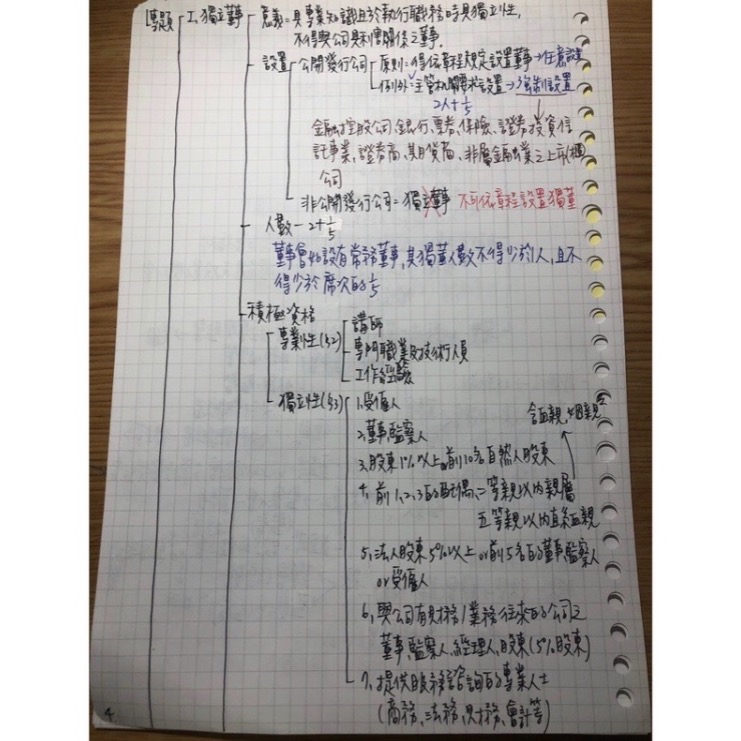 專題 I. 獨立董事 意義=具專業知識且於執行職務時具獨立性,
不得與公司具利害關係之董事.
設置 公開發行公司 原則=得依章程規定設置董事→任意設置
例外=主管機關要求設置→強制設置
2人+1/5
金融控股公司,銀行,票券,保險,證券投資信
託事業,證券商,期貨商,非屬金融業之上市/櫃
公司
非公開發行公司=獨立董事 不可依章程設置獨董
人數-2+1/5
董事會如設有常務董事,其獨董人數不得少於1人,且不
得少於席次的1/5
積極資格
專業性(§2) 講師
專門職業及技術人員
工作經驗
獨立性(§3) 1.受僱人
2.董事,監察人
3.股東1%以上,前10名自然人股東
含血親,姻親
4.前1,2,3的配偶,二等親以內親屬
五等親以內直系血親
5.法人股東5%以上or前5名的董事,監察人
or受僱人
6.與公司有財務/業務往來的公司之
董事,監察人,經理人,股東(5%股東)
7.提供服務諮詢的專業人士
(商務,法務,財務,會計等)
4